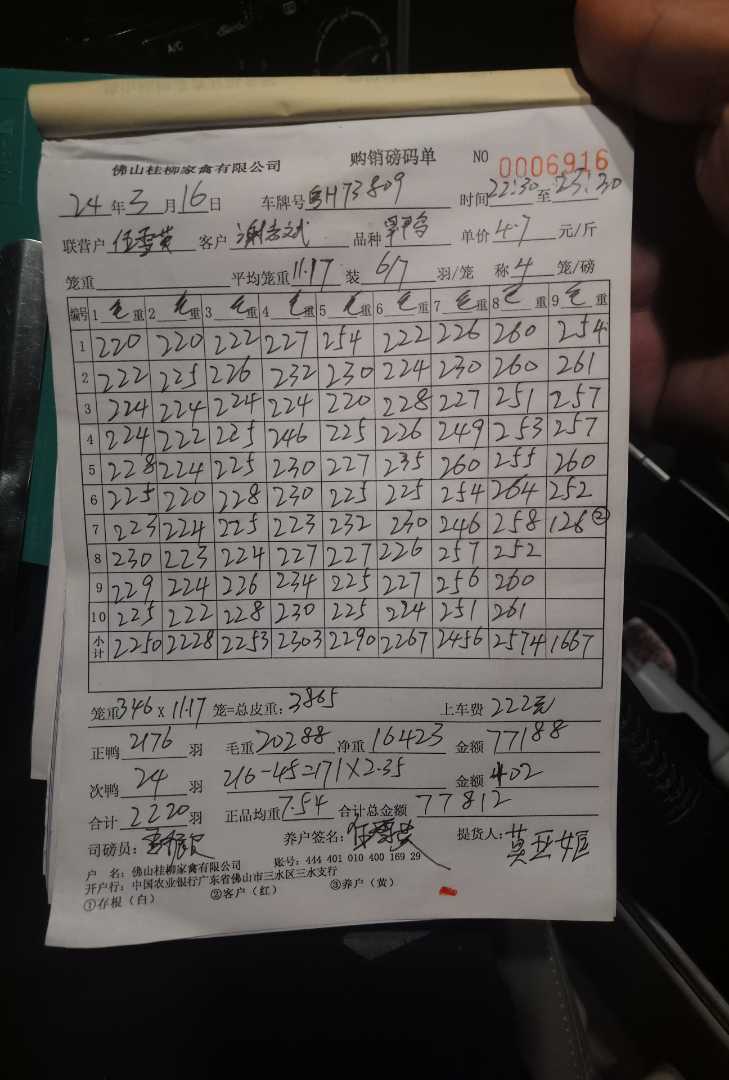 佛山桂柳家禽有限公司 购销磅码单 NO 0006916
24年3月16日 车牌号粤H73809 时间22:30至23:30
联营户 伍雪英 客户 品种 单价4.7元/斤
笼重 平均笼重11.17 装6/7羽/笼 称4笼/磅
编号 1毛重 2毛重 3毛重 4毛重 5毛重 6毛重 7毛重 8毛重 9毛重
1 220 220 222 227 254 222 226 260 254
2 222 225 226 232 230 224 230 260 261
3 224 224 224 224 220 228 227 251 257
4 224 222 225 246 225 226 249 253 257
5 228 224 225 230 227 235 260 255 260
6 225 220 228 230 225 225 254 264 252
7 223 224 225 223 232 230 246 258 126②
8 230 223 224 227 227 226 257 252
9 229 224 226 234 225 227 256 260
10 225 222 228 230 225 224 251 261
小计 2250 2228 2253 2303 2290 2267 2456 2574 1667
笼重346X11.17笼=总皮重:3865 上车费 222元
正鸭 2176 羽 毛重20288 净重16423 金额77188
次鸭 24 羽 216-45=171X2.35 金额402
合计 2220羽 正品均重7.54 合计总金额77812
司磅员: 养户签名: 提货人:莫亚姬
户 名:佛山桂柳家禽有限公司 账号:444 401 010 400 169 29
开户行:中国农业银行广东省佛山市三水区三水支行
①存根(白) ②客户(红) ③养户(黄)